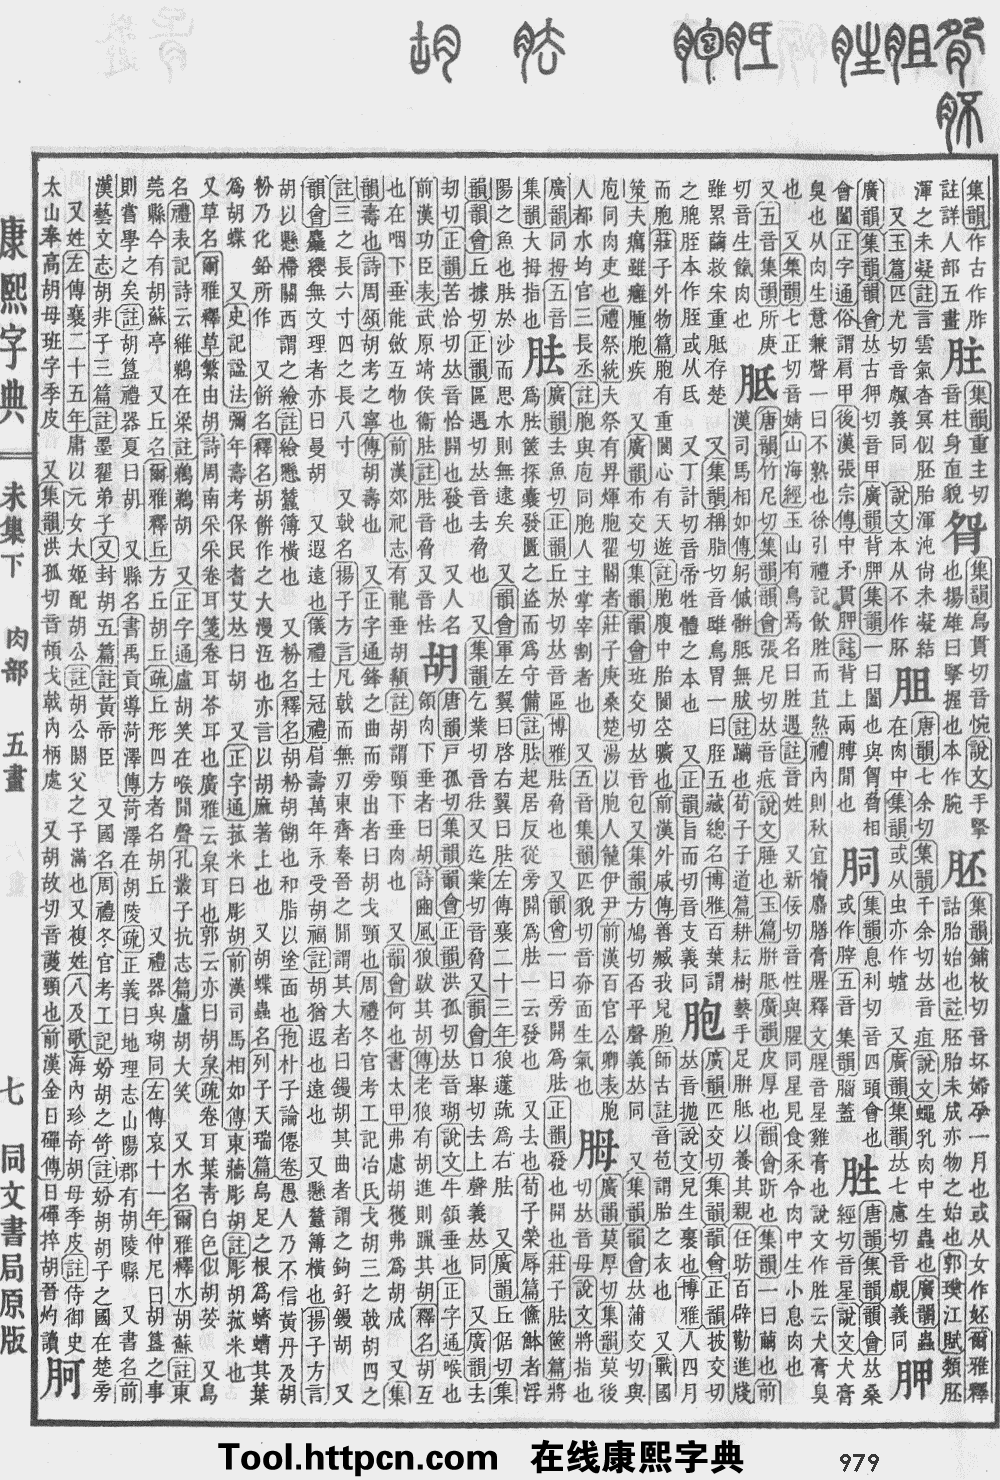 集韻作古作胙
註詳人部五畫
集韻重主切
音柱身直貌
集韻烏貫切音惋說文手擊
也揚雄曰擊握也本作腕
胚
集韻鋪枚切音坏婦孕一月也或从女作妚爾雅釋
詁胎始也註胚胎未成亦物之始也郭璞江賦類胚
渾之未凝註言雲氣杳冥似胚胎渾沌尙未凝結
又玉篇匹尤切音義同 說文本从不作肧
唐韻七余切集韻千余切𠀤音疽說文蠅乳肉中蟲也廣韻蟲
在肉中集韻或从虫亦作蛆 又廣韻集韻𠀤七慮切音覰義同
胛
廣韻集韻韻會𠀤古狎切音甲廣韻背胛集韻一曰闔也與脅相
會闔正字通俗謂肩甲後漢張宗傳中矛貫胛註背上兩膊閒也
胴
集韻息利切音四頭會也
或作䏢五音集韻腦蓋
胜
唐韻集韻韻會𠀤桑
經切音星說文犬膏
臭也从肉生意兼聲一曰不熟也徐引禮記飮胜而苴熟禮內則秋宜犢麛膳膏腥釋文腥音星雞膏也說文作胜云犬膏臭
也 又集韻七正切音婧山海經玉山有鳥焉名曰胜遇註音姓 又新佞切音性與腥同星見食豕令肉中生小息肉也
又五音集韻所庚
切音生飯肉也
胝
唐韻竹尼切集韻韻會張尼切𠀤音疷說文腄也玉篇胼胝廣韻皮厚也韻會趼也集韻一曰繭也前
漢司馬相如傳躬傶骿胝無胈註躪也荀子子道篇耕耘樹藝手足胼胝以養其親任昉百辟勸進牋
雖累繭救宋重胝存楚 又集韻稱脂切音鴟鳥胃一曰胵五藏總名博雅百葉謂
之膍胵本作胵或从氐 又丁計切音帝牲體之本也 又正韻旨而切音支義同
胞
廣韻匹交切集韻韻會正韻披交切
𠀤音拋說文兒生裹也博雅人四月
而胞莊子外物篇胞有重閬心有天遊註胞腹中胎閬空曠也前漢外戚傳善臧我兒胞師古註音苞謂胎之衣也 又戰國
策夫癘雖癰腫胞疾 又廣韻布交切集韻韻會班交切𠀤音包又集韻方鳩切否平聲義𠀤同 又集韻韻會𠀤蒲交切與
庖同肉吏也禮祭統夫祭有畀煇胞翟閽者莊子庚桑楚湯以胞人籠伊尹前漢百官公卿表胞
人都水均官三長丞註胞與庖同胞人主掌宰割者也 又五音集韻匹貌切音奅面生氣也
胟
廣韻莫厚切集韻莫後
切𠀤音母說文將指也
廣韻同拇五音
集韻大拇指也
胠
廣韻去魚切正韻丘於切𠀤音區博雅胠脅也 又韻會一曰旁開爲胠正韻發也開也莊子胠篋篇將
爲胠篋探囊發匱之盜而爲守備註胠起居反從旁開爲胠一云發也 又荀子榮辱篇鯈䱁者浮
陽之魚也胠於沙而思水則無逮矣 又韻會軍左翼曰啓右翼曰胠左傳襄二十三年狼蘧疏爲右胠 又廣韻丘倨切集
韻韻會丘據切正韻區遇切𠀤音去脅也 又集韻乞業切音㤼又迄業切音脅又韻會口舉切去上聲義𠀤同 又廣韻去
劫切正韻苦洽切𠀤音恰開也發也 又人名
前漢功臣表武原靖侯衞胠註胠音脅又音怯
胡
唐韻戸孤切集韻韻會正韻洪孤切𠀤音瑚說文牛頷垂也正字通喉也
頷肉下垂者曰胡詩豳風狼跋其胡傳老狼有胡進則躐其胡釋名胡互
也在咽下垂能斂互物也前漢郊祀志有龍垂胡䫇註胡謂頸下垂肉也 又韻會何也書太甲弗慮胡獲弗爲胡成 又集
韻壽也詩周頌胡考之寧傳胡壽也 又正字通鋒之曲而旁出者曰胡戈頸也周禮冬官考工記冶氏戈胡三之戟胡四之
註三之長六寸四之長八寸 又戟名揚子方言凡戟而無刃東齊秦晉之閒謂其大者曰鏝胡其曲者謂之鉤釨鏝胡 又
韻會麤纓無文理者亦曰曼胡 又遐遠也儀禮士冠禮眉壽萬年永受胡福註胡猶遐也遠也 又懸蠶簿橫也揚子方言
胡以懸㯕關西謂之䋎註䋎懸蠶簿橫也 又粉名釋名胡粉胡餬也和脂以塗面也抱朴子論僊卷愚人乃不信黃丹及胡
粉乃化鉛所作 又餠名釋名胡餠作之大漫沍也亦言以胡麻著上也 又胡蝶蟲名列子天瑞篇烏足之根爲蠐螬其葉
爲胡蝶 又史記諡法彌年壽考保民耆艾𠀤曰胡 又正字通菰米曰彫胡前漢司馬相如傳東蘠彫胡註彫胡菰米也
又草名爾雅釋草蘩由胡詩周南采采卷耳箋卷耳苓耳也廣雅云枲耳也郭云亦曰胡枲疏卷耳葉靑白色似胡荽 又鳥
名禮表記詩云維鵜在梁註鵜鵜胡 又正字通盧胡笑在喉閒聲孔叢子抗志篇盧胡大笑 又水名爾雅釋水胡蘇註東
莞縣今有胡蘇亭 又丘名爾雅釋丘方丘胡丘疏丘形四方者名胡丘 又禮器與瑚同左傳哀十一年仲尼曰胡簋之事
則嘗學之矣註胡簋禮器夏曰胡 又縣名書禹貢導菏澤傳菏澤在胡陵疏正義曰地理志山陽郡有胡陵縣 又書名前
漢藝文志胡非子三篇註墨翟弟子又封胡五篇註黃帝臣 又國名周禮冬官考工記妢胡之笴註妢胡胡子之國在楚旁
又姓左傳襄二十五年庸以元女大姬配胡公註胡公閼父之子滿也又複姓八及歌海內珍奇胡母季皮註侍御史
太山奉高胡母班字季皮 又集韻洪孤切音頶戈戟內柄處 又胡故切音護頸也前漢金日磾傳日磾捽胡晉灼讀
胢
康熙字典
未集下 肉部 五畫
七 同文書局原版
Tool.httpcn.com 在线康熙字典 979